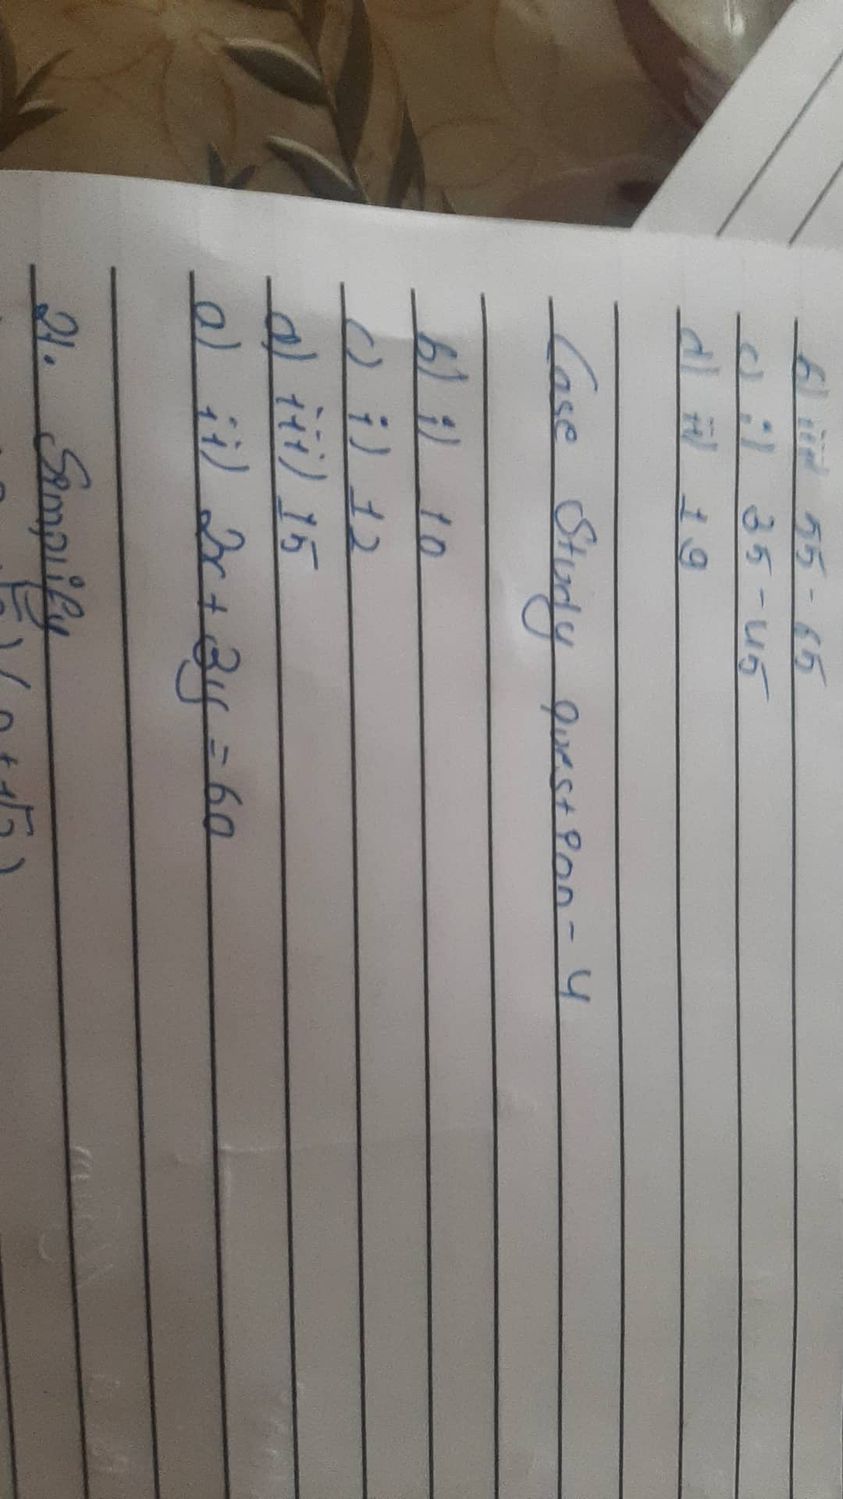 b) iii) 55-65
c) i) 35-45
d) ii) 19
Case Study question-4
b) i) 10
c) i) 12
d) iii) 15
a) ii) 2x+3y=60
21. Simpify